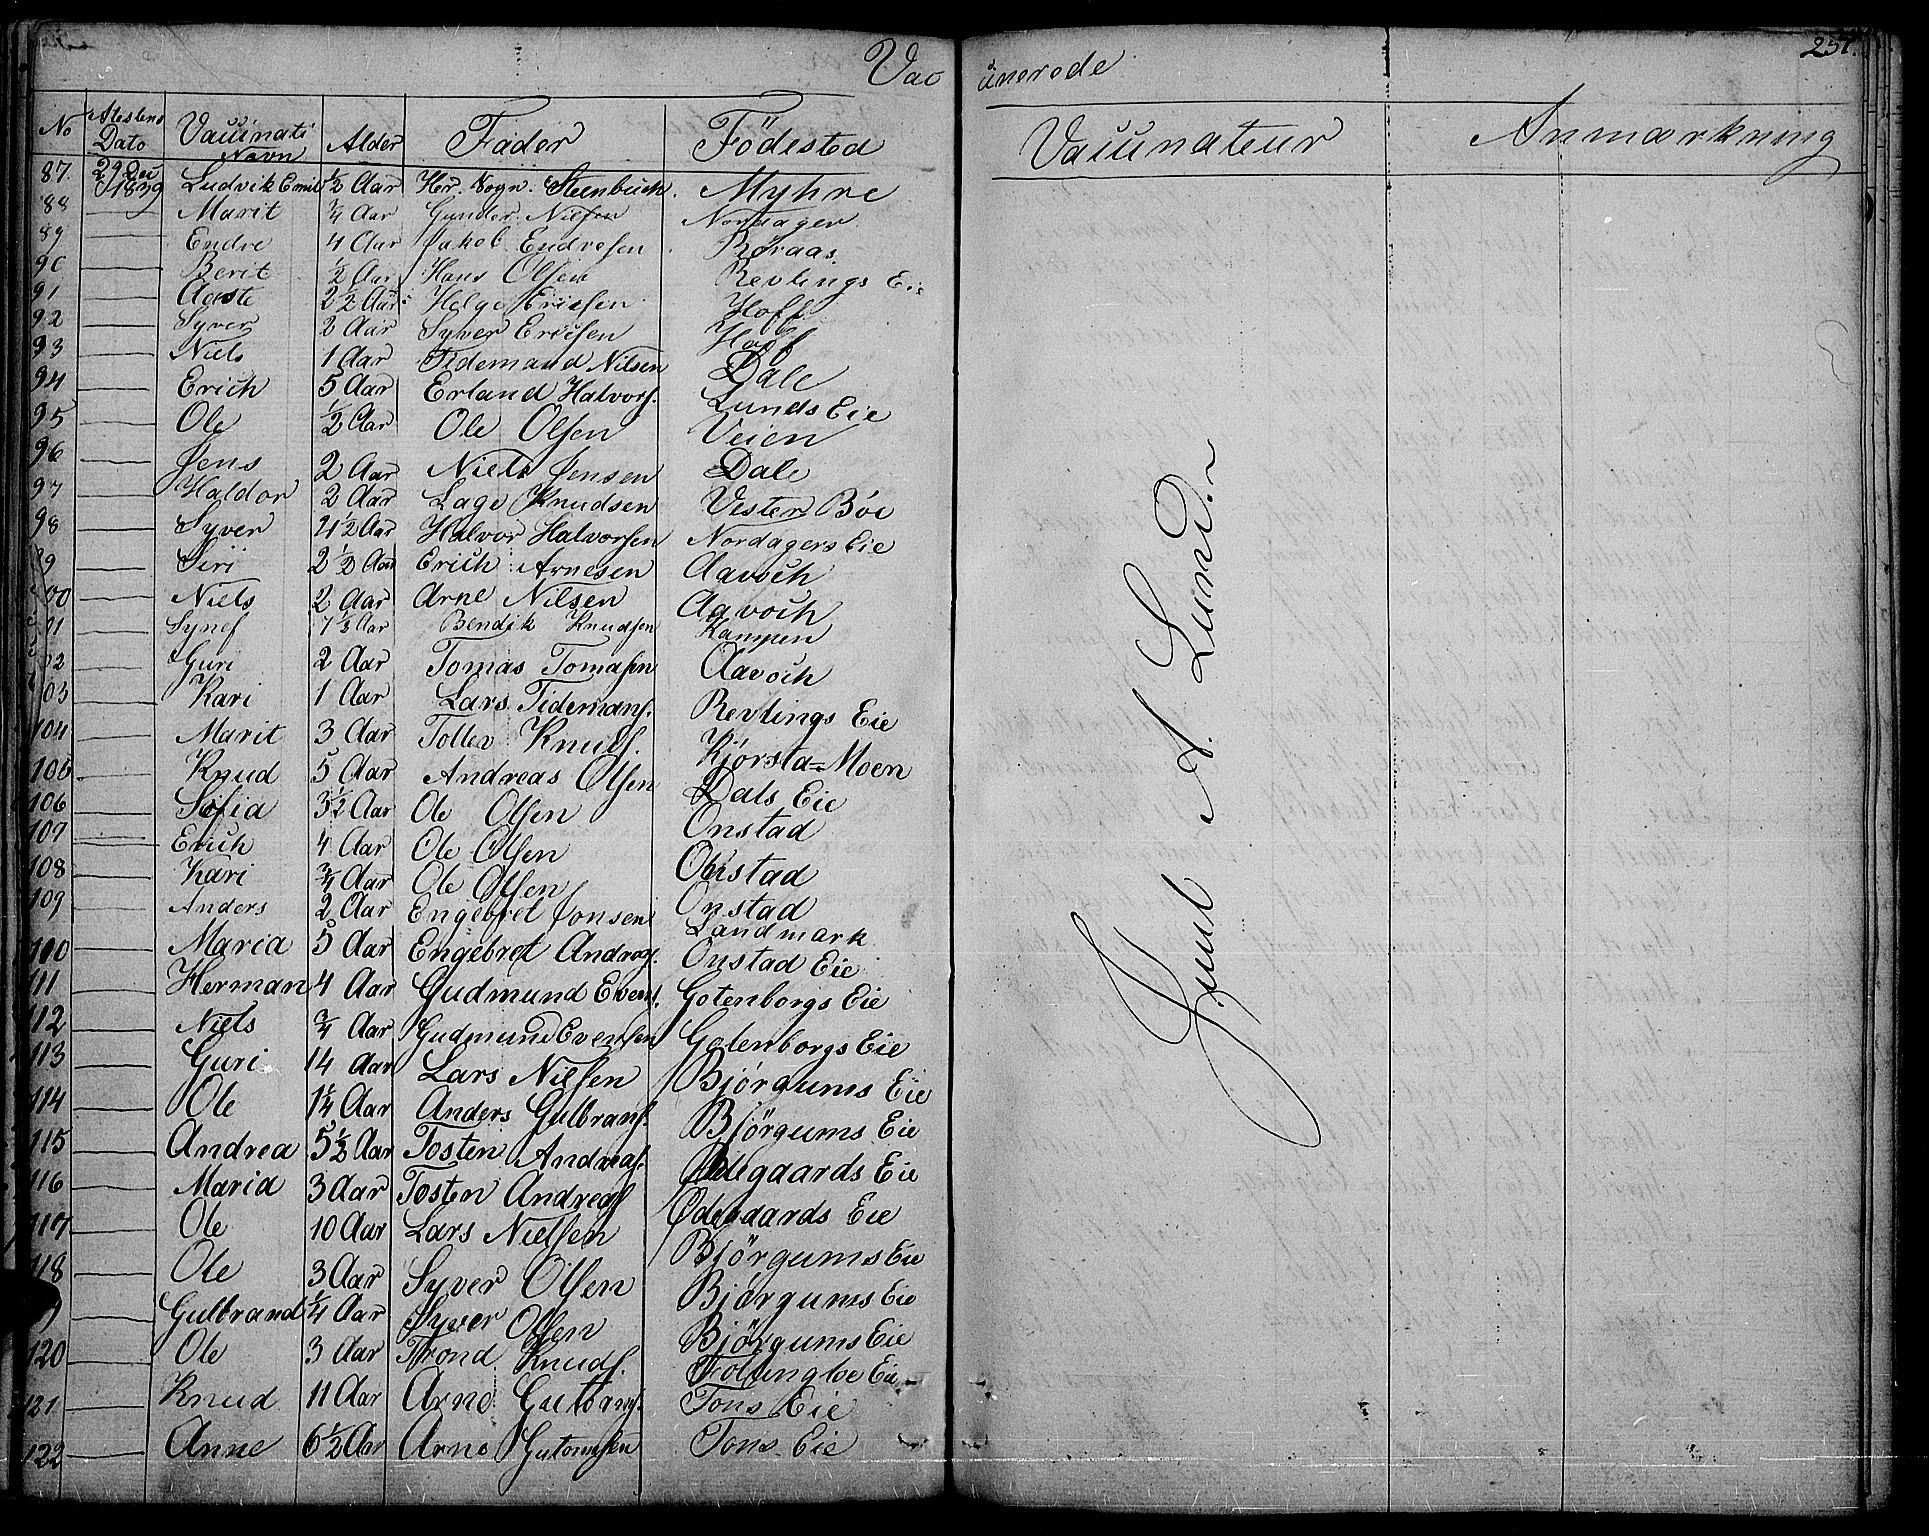 Vac cinerede
257.
No Atestens Dato Vaccinati Navn Alder Fader Födested Vaccinateur Anmærkning
87. 29 Dec 1829 Ludvik Emil ½ Aar Her. Sogn. Steenbuch. Myhre
88 — Marit ¾ Aar Gunder Nielsen Nordager
89 — Endre 4 Aar Jakob Endresen Røraas.
90 — Berit ½ Aar Hans Olsen Revlings Eie
91 — Aaste 2½ Aar Helge Ericsen Hoff
92 — Syver 2 Aar Syver Ericsen Hoff
93 — Niels 1 Aar Tidemand Nilsen Dale
94 — Erich 5 Aar Erland Halvors. Lunds Eie
95 — Ole ½ Aar Ole Olsen Veien
96 — Jens 2 Aar Niels Jensen Dale
97 — Haldor 2 Aar Lage Knudsen Vester Böe
98 — Syver 4½ Aar Halvor Halvorsen Nordagers Eie
99 — Siri 2½ Aar Erich Arnesen Aavoch
100 — Niels 2 Aar Arne Nilsen Aavoch
101 — Synef 7½ Aar Bendik Knudsen Kampen
102 — Guri 2 Aar Tomas Tomasen Aavoch
103 — Kari 1 Aar Lars Tidemans. Revlings Eie
104 — Marit 3 Aar Tollev Knuts. Kjörsta=Moen
105 — Knud 5 Aar Andreas Olsen Dals Eie
106 — Sofia 3½ Aar Ole Olsen Onstad
107 — Erich 4 Aar Ole Olsen Onstad
108 — Kari ¾ Aar Ole Olsen Onstad
109 — Anders 2 Aar Engebret Jonsen Landmark
110 — Maria 5 Aar Engebret Andreas. Onstad Eie
111 — Herman 4 Aar Gudmund Evens. Gotenborgs Eie
112 — Niels ¾ Aar Gudmund Evensen Gotenborgs Eie
113 — Guri 14 Aar Lars Nilsen Björgums Eie
114 — Ole 1¼ Aar Anders Gulbrans. Björgums Eie
115 — Andrea 5½ Aar Tosten Andreas. Ødegaards Eie
116 — Maria 3 Aar Tosten Andreas Ødegaards Eie
117 — Ole 10 Aar Lars Nielsen Björgums Eie
118 — Ole 3 Aar Syver Olsen Björgums Eie
119 — Gulbrand ¼ Aar Syver Olsen Björgums Eie
120 — Ole 3 Aar Trond Knuds. Folungloe Eie
121 — Knud 11 Aar Arne Gutorms. Tons Eie
122 — Anne 6½ Aar Arne Gutormsen Tons Eie
Knut A. Lund.